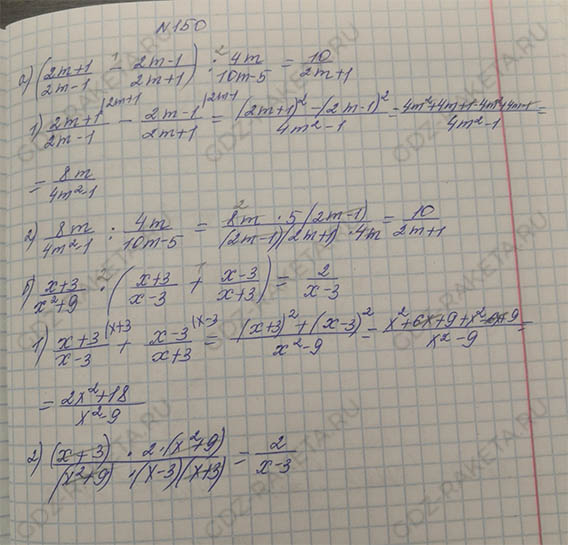 N150
а) ((2m+1)/(2m-1) - (2m-1)/(2m+1)) : 4m/(10m-5) = 10/(2m+1)
1) (2m+1)/(2m-1) |2m+1 - (2m-1)/(2m+1) |2m-1 = ((2m+1)² - (2m-1)²)/(4m²-1) = (4m²+4m+1-4m²+4m-1)/(4m²-1) =
= 8m/(4m²-1)
2) 8m/(4m²-1) : 4m/(10m-5) = (8m · 5(2m-1))/((2m-1)(2m+1) · 4m) = 10/(2m+1)
б) (x+3)/(x²+9) · ((x+3)/(x-3) + (x-3)/(x+3)) = 2/(x-3)
1) (x+3)/(x-3) |x+3 + (x-3)/(x+3) |x-3 = ((x+3)² + (x-3)²)/(x²-9) = (x²+6x+9+x²-6x+9)/(x²-9) =
= (2x²+18)/(x²-9)
2) ((x+3) · 2·(x²+9))/((x²+9) · (x-3)(x+3)) = 2/(x-3)
GDZ-RAKETA.RU